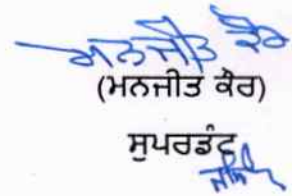 ਮਨਜੀਤ ਕੌਰ
(ਮਨਜੀਤ ਕੌਰ)
ਸੁਪਰਡੰਟ